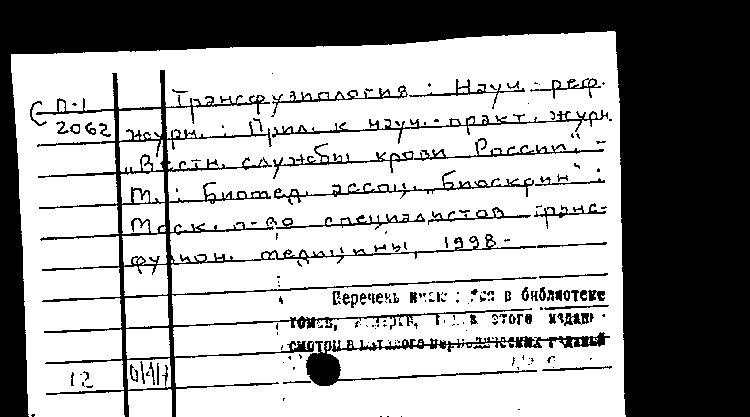 С П-1 Трансфузиология : Науч.-реф.
2062 журн. : Прил. к науч.-практ. журн.
„Вестн. службы крови России". -
М. : Биомед. ассоц. „Биоскрин" :
Моск. о-во специалистов транс-
фузион. медицины, 1998 -
Перечень в библиотеке
томов, этого издан
смотри в каталоге периодических изданий
12